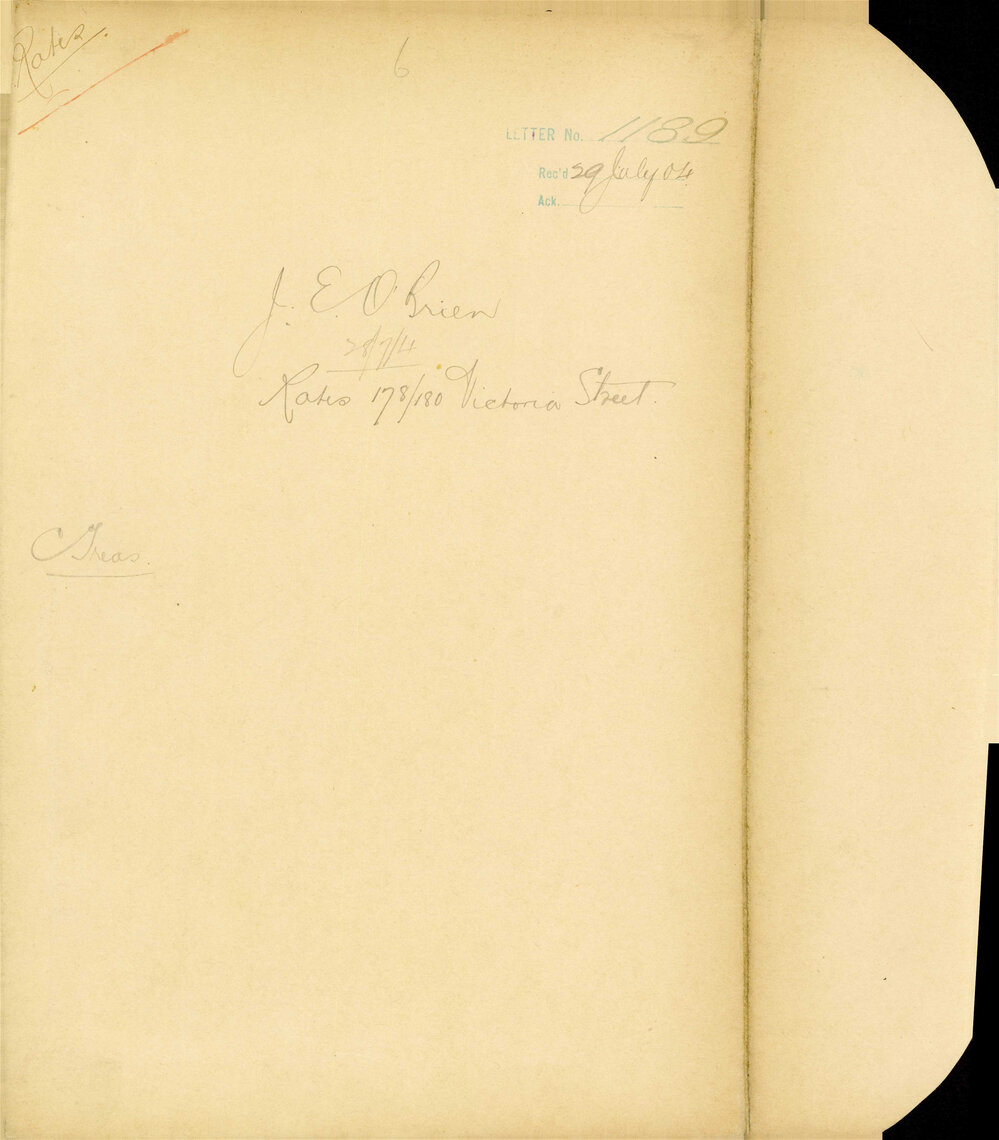 Rates.
6
LETTER No. 1189
Rec'd 29 July 04
Ack.
J. E. O'Brien
28/7/4
Rates 178/180 Victoria Street.
C Treas.